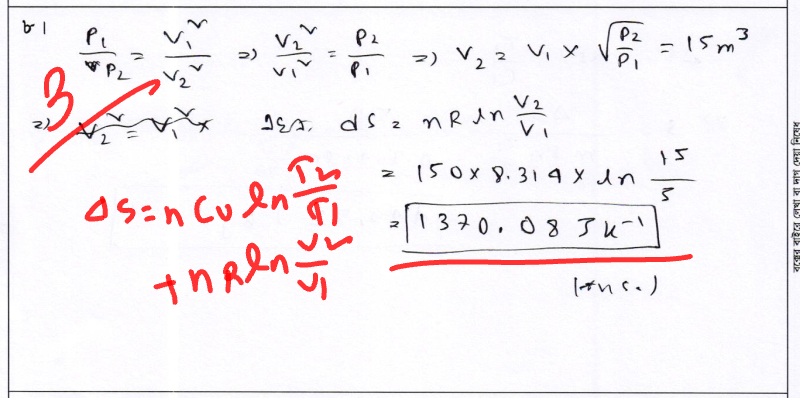 ৮।
P₁/P₂ = V₁²/V₂² ⇒ V₂²/V₁² = P₂/P₁ ⇒ V₂ = V₁ × √(P₂/P₁) = 15 m³
3
⇒ V₂² = V₁² × dS = nR ln V₂/V₁
= 150 × 8.314 × ln 15/5
= 1370.083 JK⁻¹
(Ans.)
ΔS = nCv ln T₂/T₁
+ nR ln V₂/V₁
বক্সের বাইরে লেখা বা দাগ দেয়া নিষেধ